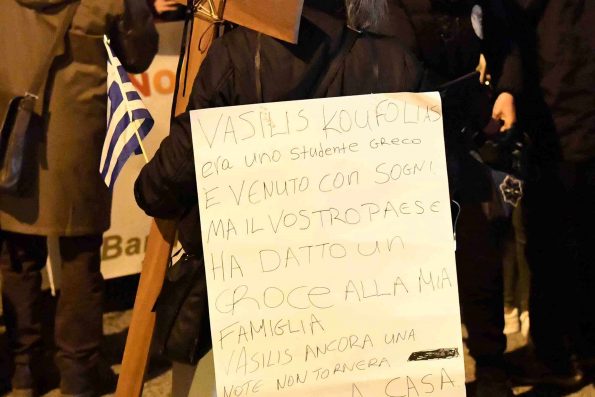 No
Ba
VASILIS KOUFOLIAS
era uno studente GRECO
È VENUTO CON SOGNI.
MA IL VOSTRO PAESE
HA DATTO UN
CROCE ALLA MIA
FAMIGLIA
VASILIS ANCORA UNA
NOTE NON TORNERA
A CASA